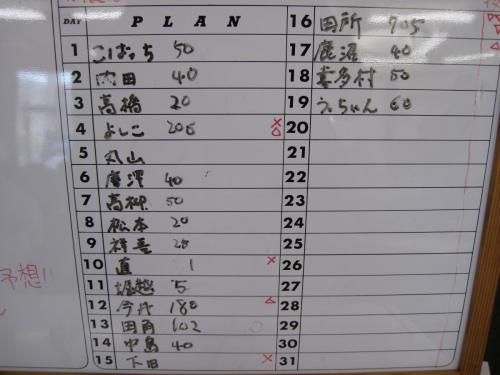 DAY PLAN
1 こばっち 50
2 内田 40
3 高橋 20
4 よしこ 206 ×
5 丸山
6 唐澤 40
7 高柳 50
8 松本 20
9 祥吾 20
10 直 1 ×
11 堀越 5
12 今井 180 △
13 田角 102
14 中島 40
15 下田 ×
16 田所 705
17 鹿沼 40
18 喜多村 50
19 うちゃん 60
20
21
22
23
24
25
26
27
28
29
30
31
予想!!